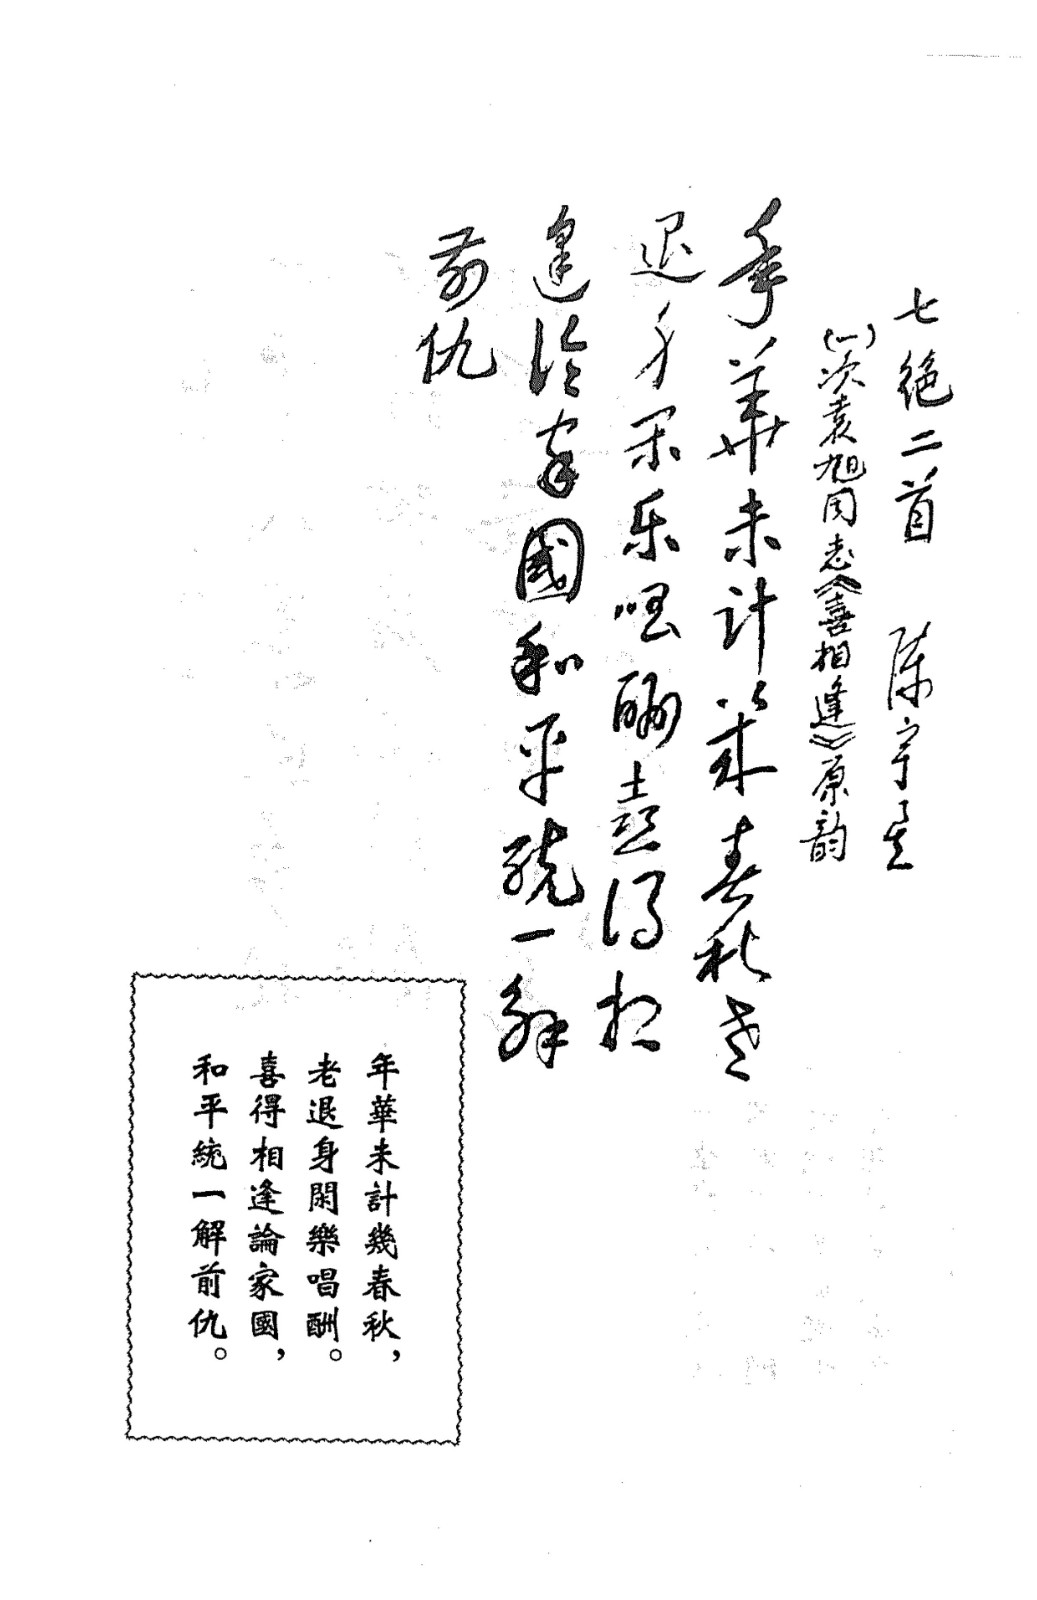 七绝二首 陈
(一)次袁旭同志《喜相逢》原韵
年華未计幾春秋老
退身闲乐唱酬喜得相
逢论家國和平统一解
前仇
年華未計幾春秋，
老退身閑樂唱酬。
喜得相逢論家國，
和平統一解前仇。